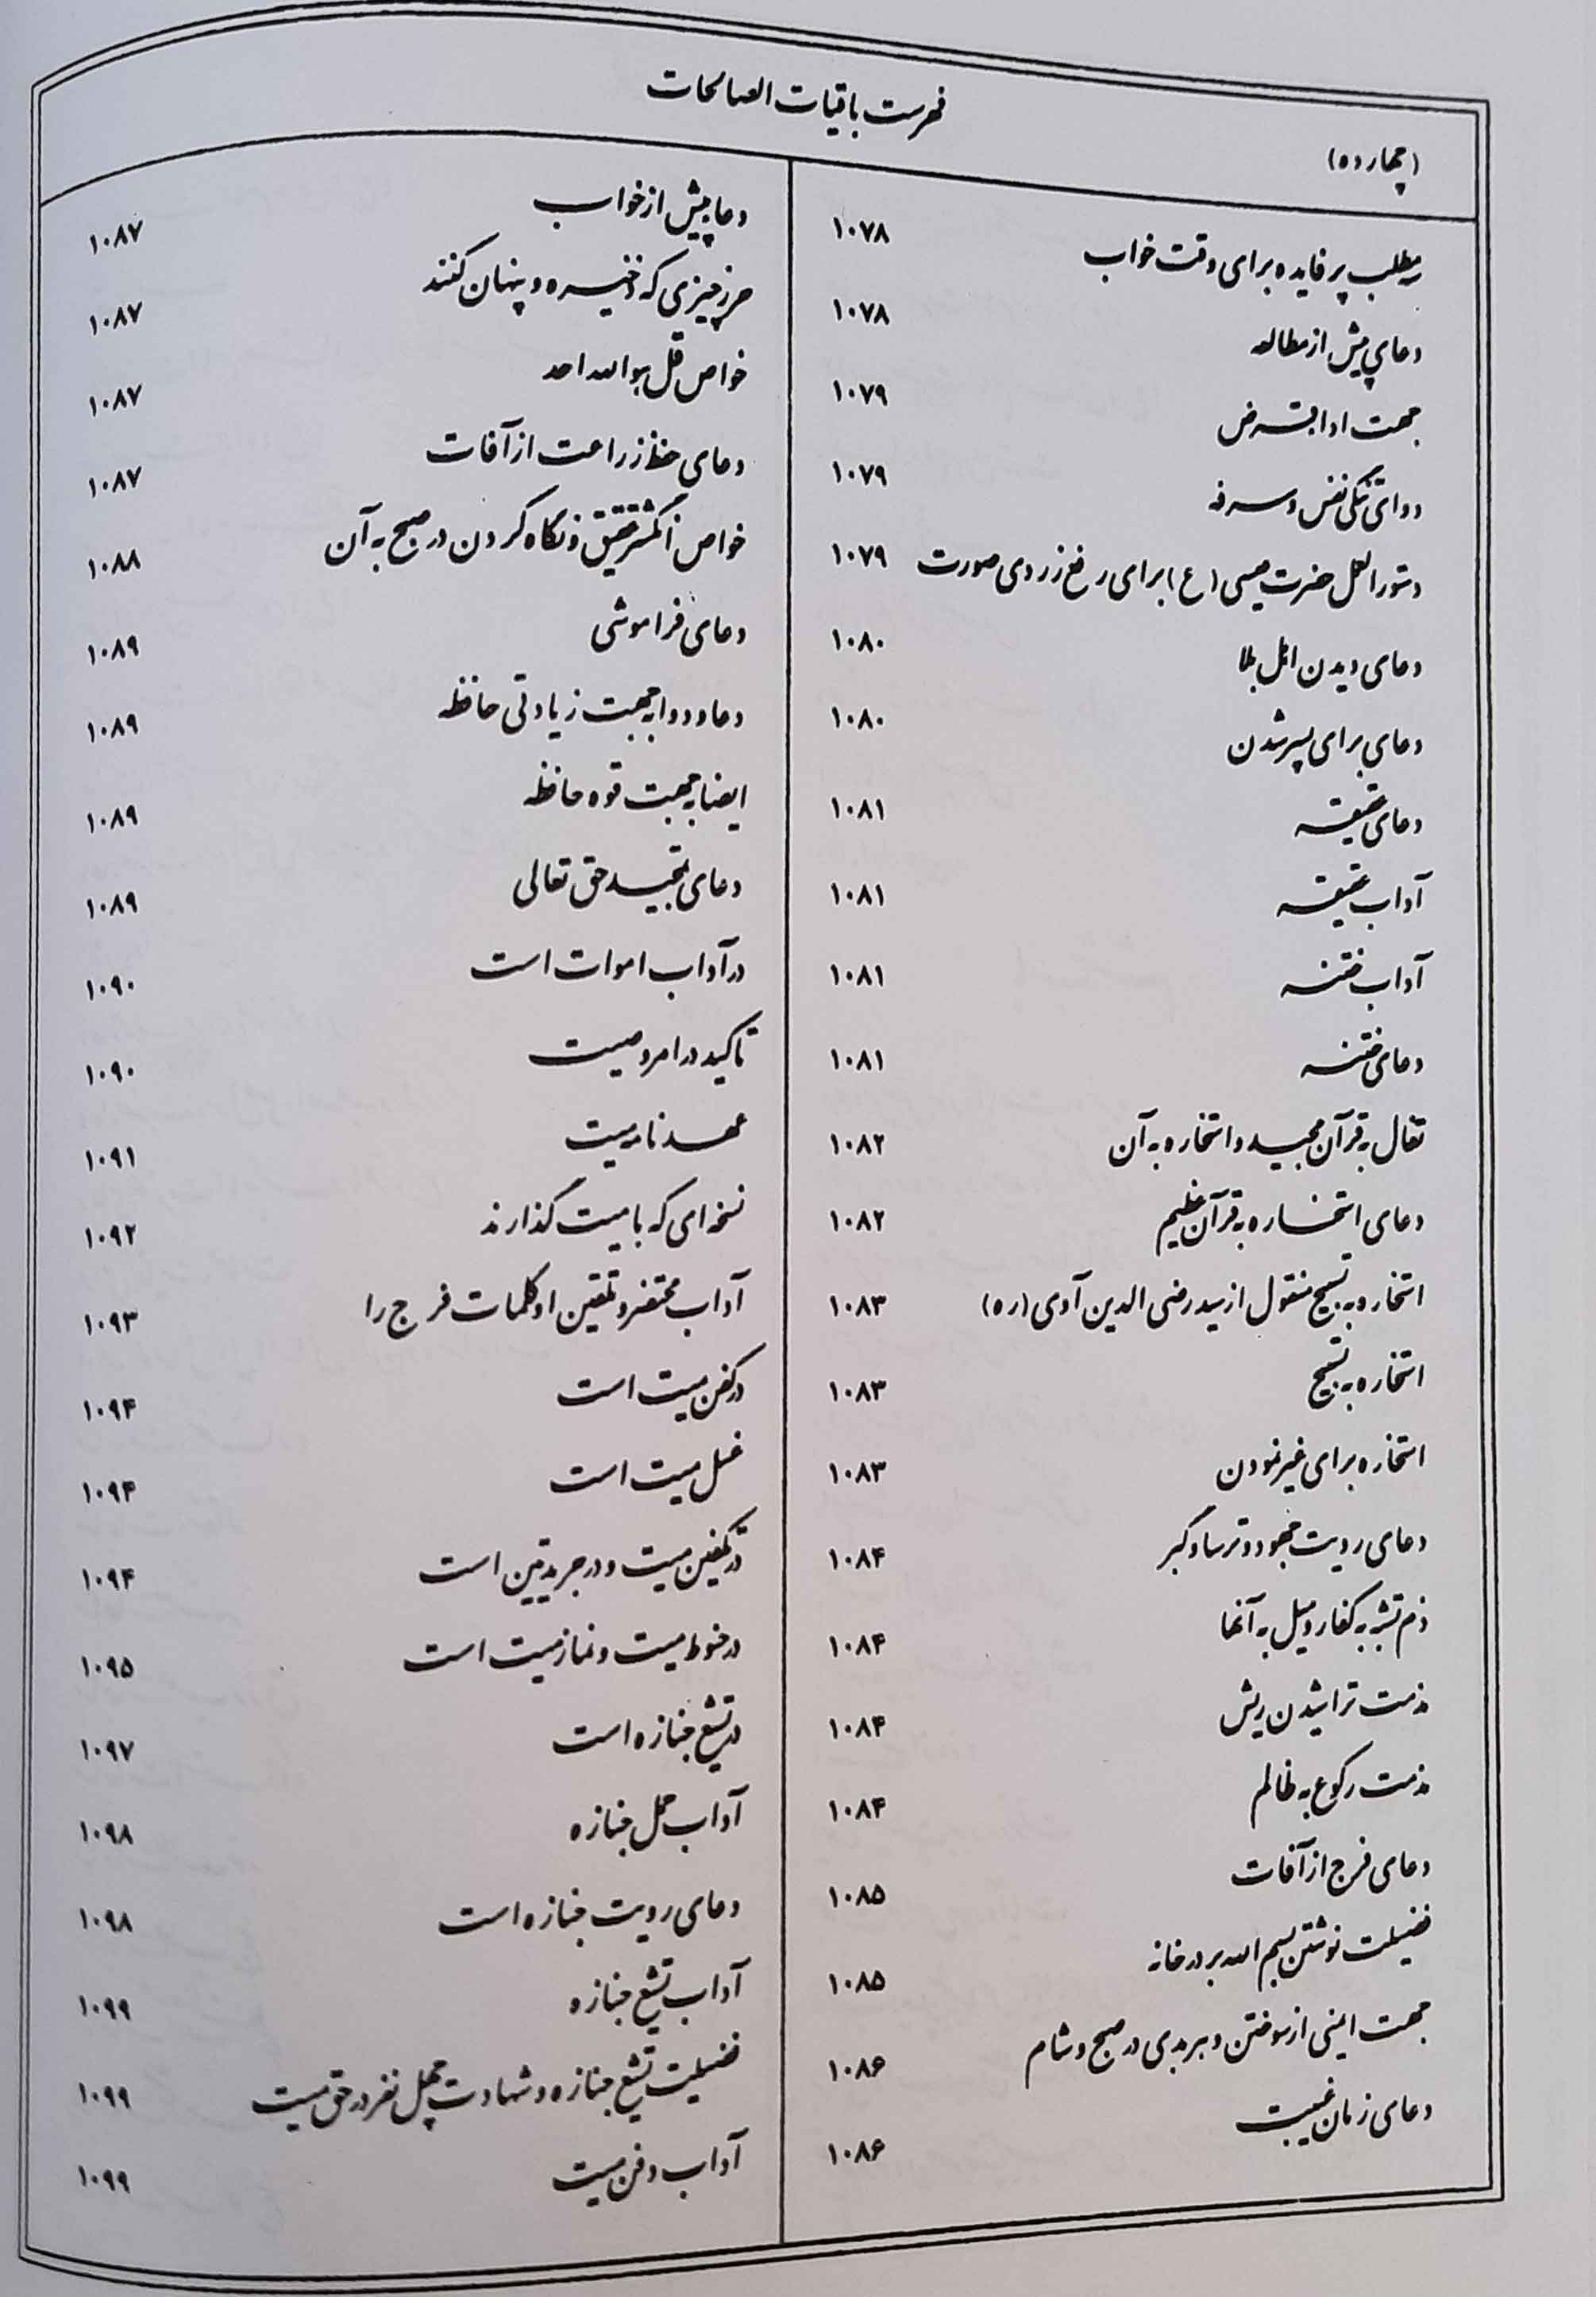 فهرست باقیات الصالحات
(چهارده)
سه مطلب پر فایده برای وقت خواب ۱۰۷۸
دعای پیش از مطالعه ۱۰۷۸
جهت ادا قرض ۱۰۷۹
دوای تنگی نفس و سرفه ۱۰۷۹
دستور العمل حضرت عیسی (ع) برای رفع زردی صورت ۱۰۷۹
دعای دیدن اهل بلا ۱۰۸۰
دعای برای پسر شدن ۱۰۸۰
دعای عقیقه ۱۰۸۱
آداب عقیقه ۱۰۸۱
آداب ختنه ۱۰۸۱
دعای ختنه ۱۰۸۱
تفال به قرآن مجید و استخاره به آن ۱۰۸۲
دعای استخاره به قرآن عظیم ۱۰۸۲
استخاره به تسبیح منقول از سید رضی الدین آوی (ره) ۱۰۸۳
استخاره به تسبیح ۱۰۸۳
استخاره برای غیر نمودن ۱۰۸۳
دعای رویت جهود و ترسا و گبر ۱۰۸۴
ذم تشبه به کفار و میل به آنها ۱۰۸۴
مذمت تراشیدن ریش ۱۰۸۴
مذمت رکوع به ظالم ۱۰۸۴
دعای فرج از آفات ۱۰۸۵
فضیلت نوشتن بسم الله بر در خانه ۱۰۸۵
جهت ایمنی از سوختن و هر بدی در صبح و شام ۱۰۸۶
دعای زمان غیبت ۱۰۸۶
دعا پیش از خواب ۱۰۸۷
حرز چیزی که ذخیره و پنهان کنند ۱۰۸۷
خواص قل هو الله احد ۱۰۸۷
دعای حفظ زراعت از آفات ۱۰۸۷
خواص انگشتر عقیق و نگاه کردن در صبح به آن ۱۰۸۸
دعای فراموشی ۱۰۸۹
دعا و دوا به جهت زیادتی حافظه ۱۰۸۹
ایضا به جهت قوه حافظه ۱۰۸۹
دعای تمجید حق تعالی ۱۰۸۹
در آداب اموات است ۱۰۹۰
تاکید در امر وصیت ۱۰۹۰
عهد نامه میت ۱۰۹۱
نسخه ای که با میت گذارند ۱۰۹۲
آداب محتضر و تلقین او کلمات فرج را ۱۰۹۳
در کفن میت است ۱۰۹۴
غسل میت است ۱۰۹۴
در تکفین میت و در جریدتین است ۱۰۹۴
در حنوط میت و نماز میت است ۱۰۹۵
در تشیع جنازه است ۱۰۹۷
آداب حمل جنازه ۱۰۹۸
دعای رویت جنازه است ۱۰۹۸
آداب تشیع جنازه ۱۰۹۹
فضیلت تشیع جنازه و شهادت چهل نفر در حق میت ۱۰۹۹
آداب دفن میت ۱۰۹۹